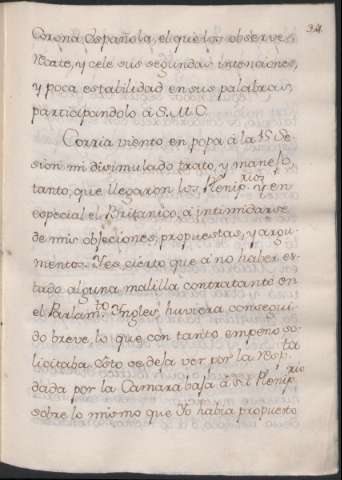 34
Corona Española, el que los observe
Norte, y cele sus segundas intenciones,
y poca estabilidad en sus palabras,
participandolo à S.M.C.
Corria viento en popa à la Se-
sion mi disimulado trato, y manejo
tanto, que llegaron los Plenip.rios y en
especial el Britanico, à intimidarse
de mis objeciones, propuestas, y argu-
mentos. Y es cierto que à no haber es-
tado alguna malilla contratante en
el Parlam.to Ingles, huviera consegui-
do breve, lo que con tanto empeño so-
licitaba. Esto se deja ver por la Resp.ta
dada por la Camara baja à su Plenip.rio
sobre lo mismo que Yo habia propuesto